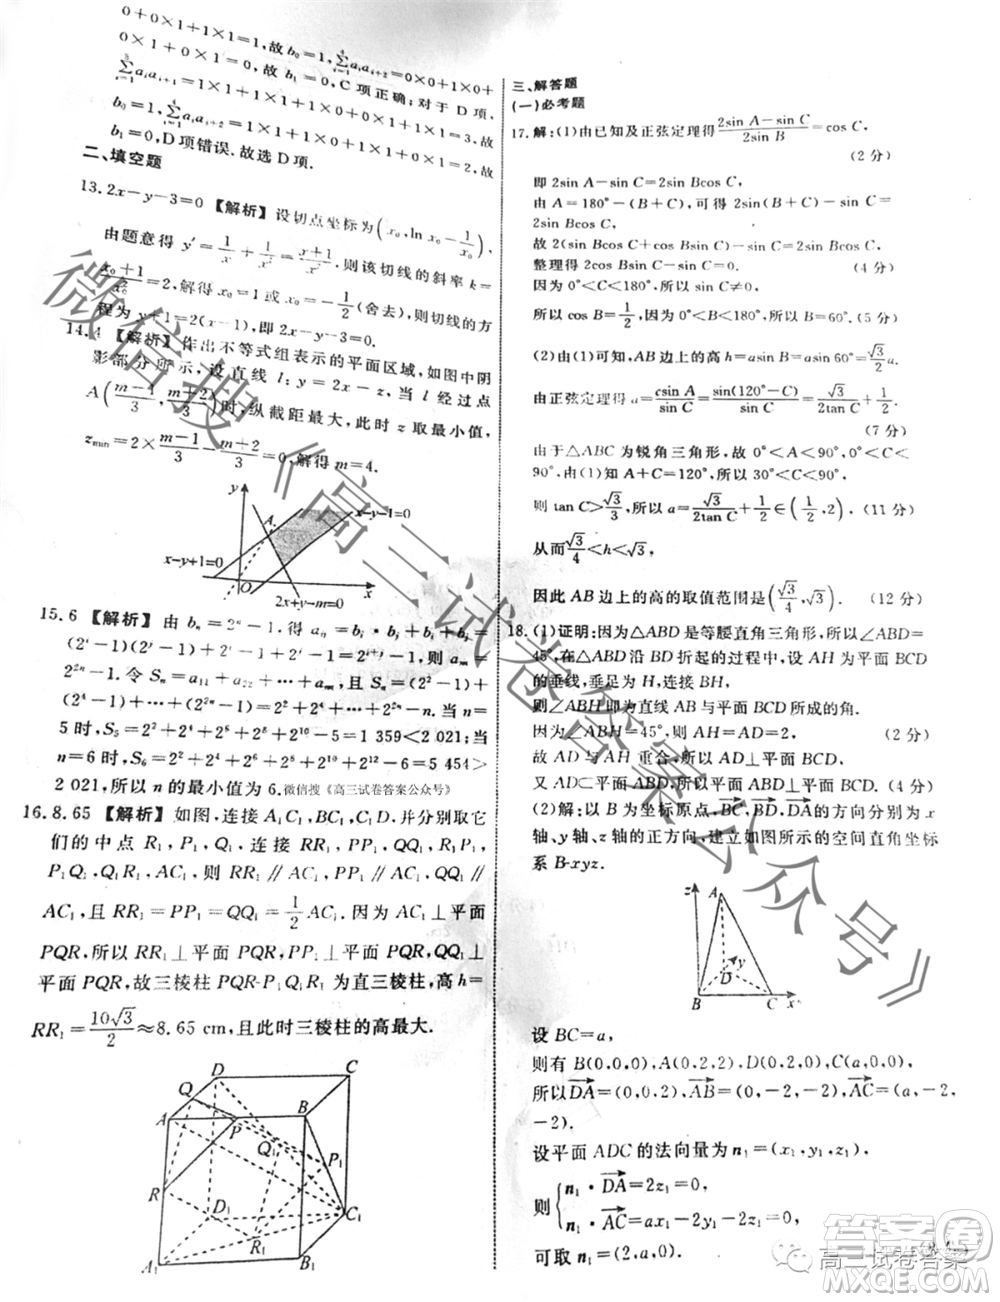 0+0×1+1×1=1,故b₀=1,∑aᵢaᵢ₊₂=0×0+1×0+
0×1+0×1=0,故b₁=0,C项正确;对于D项,
∑aᵢaᵢ₊₁=1×1+1×0+0×1+1×1=3,故
b₀=1,∑aᵢaᵢ₊₂=1×1+1×0+1×1=2,故
b₁=0,D项错误.故选D项.
二、填空题
13.2x-y-3=0 【解析】设切点坐标为(x₀,ln x₀-1/x₀),
由题意得 y′=1/x+1/x²=(x+1)/x²,则该切线的斜率 k=
(x₀+1)/x₀²=2,解得 x₀=1或x₀=-1/2(舍去),则切线的方
程为y+1=2(x-1),即2x-y-3=0.
14.4 【解析】作出不等式组表示的平面区域,如图中阴
影部分所示,设直线 l:y=2x-z,当 l 经过点
A((m-1)/3,(m+2)/3)时,纵截距最大,此时 z 取最小值,
zmin=2×(m-1)/3-(m+2)/3=2,解得 m=4.
y
A
x-y-1=0
x-y+1=0
O
x
2x+y-m=0
15.6 【解析】由 bₙ=2ⁿ-1,得 aᵢⱼ=bᵢ·bⱼ+bᵢ+bⱼ=
(2ⁱ-1)(2ʲ-1)+2ⁱ-1+2ʲ-1=2ⁱ⁺ʲ-1,则 aₙₙ=
2²ⁿ-1.令 Sₙ=a₁₁+a₂₂+…+aₙₙ,则 Sₙ=(2²-1)+
(2⁴-1)+…+(2²ⁿ-1)=2²+2⁴+…+2²ⁿ-n.当 n=
5时,S₅=2²+2⁴+2⁶+2⁸+2¹⁰-5=1 359<2 021;当
n=6时,S₆=2²+2⁴+2⁶+2⁸+2¹⁰+2¹²-6=5 454>
2 021,所以 n 的最小值为 6.微信搜《高三试卷答案公众号》
16.8.65 【解析】如图,连接 A₁C₁,BC₁,C₁D,并分别取它
们的中点 R₁,P₁,Q₁,连接 RR₁,PP₁,QQ₁,R₁P₁,
P₁Q₁,R₁Q₁,AC₁,则 RR₁∥AC₁,PP₁∥AC₁,QQ₁∥
AC₁,且 RR₁=PP₁=QQ₁=1/2 AC₁.因为 AC₁⊥平面
PQR,所以 RR₁⊥平面 PQR,PP₁⊥平面PQR,QQ₁⊥
平面 PQR,故三棱柱 PQR-P₁Q₁R₁ 为直三棱柱,高 h=
RR₁=10√3/2≈8.65 cm,且此时三棱柱的高最大.
D
C
Q
A
P
B
Q₁
P₁
R
D₁
C₁
R₁
A₁
B₁
三、解答题
(一)必考题
17.解:(1)由已知及正弦定理得(2sin A-sin C)/(2sin B)=cos C,
(2分)
即 2sin A-sin C=2sin Bcos C,
由 A=180°-(B+C),可得 2sin(B+C)-sin C=
2sin Bcos C,
故 2(sin Bcos C+cos Bsin C)-sin C=2sin Bcos C,
整理得 2cos Bsin C=sin C. (4分)
因为 0°<C<180°,所以 sin C≠0,
所以 cos B=1/2,因为 0°<B<180°,所以 B=60°.(5分)
(2)由(1)可知,AB边上的高 h=asin B=asin 60°=√3/2 a.
由正弦定理得 a=csin A/sin C=sin(120°-C)/sin C=√3/(2tan C)+1/2.
(7分)
由于△ABC 为锐角三角形,故 0°<A<90°,0°<C<
90°,由(1)知A+C=120°,所以 30°<C<90°,
则 tan C>√3/3,所以 a=√3/(2tan C)+1/2∈(1/2,2).(11分)
从而√3/4<h<√3,
因此 AB 边上的高的取值范围是(√3/4,√3). (12分)
18.(1)证明:因为△ABD 是等腰直角三角形,所以∠ABD=
45°,在△ABD沿BD折起的过程中,设AH为平面BCD
的垂线,垂足为 H,连接 BH,
则∠ABH 即为直线 AB 与平面 BCD 所成的角.
因为∠ABH=45°,所以 AH=AD=2, (2分)
故 AD 与 AH 重合,所以 AD⊥平面 BCD.
又 AD⊂平面 ABD,所以平面ABD⊥平面BCD.
(2)解:以 B 为坐标原点,BC,BD,DA的方向分别为 x
轴、y轴、z轴的正方向,建立如图所示的空间直角坐标
系 B-xyz.
z
A
y
D
B
C
x
设 BC=a,
则有 B(0,0,0),A(0,2,2),D(0,2,0),C(a,0,0),
所以DA=(0,0,2),AB=(0,-2,-2),AC=(a,-2,
-2).
设平面 ADC 的法向量为 n₁=(x₁,y₁,z₁),
则{n₁·DA=2z₁=0,
n₁·AC=ax₁-2y₁-2z₁=0,
可取 n₁=(2,a,0).
微信搜《高三试卷答案公众号》
高三试卷答案
答案圈
MXQE.COM